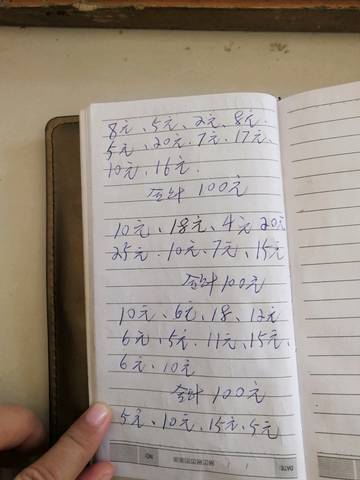 8元、5元、2元、8元.
5元、20元.7元、17元、
10元、16元.
合计 100元
10元、18元、4元 20元
25元.10元、7元、15元
合计 100元
10元、6元、18、12元
6元、5元.11元、15元、
6元、10元
合计 100元
5元、10元、15元、5元
NO.
DATE